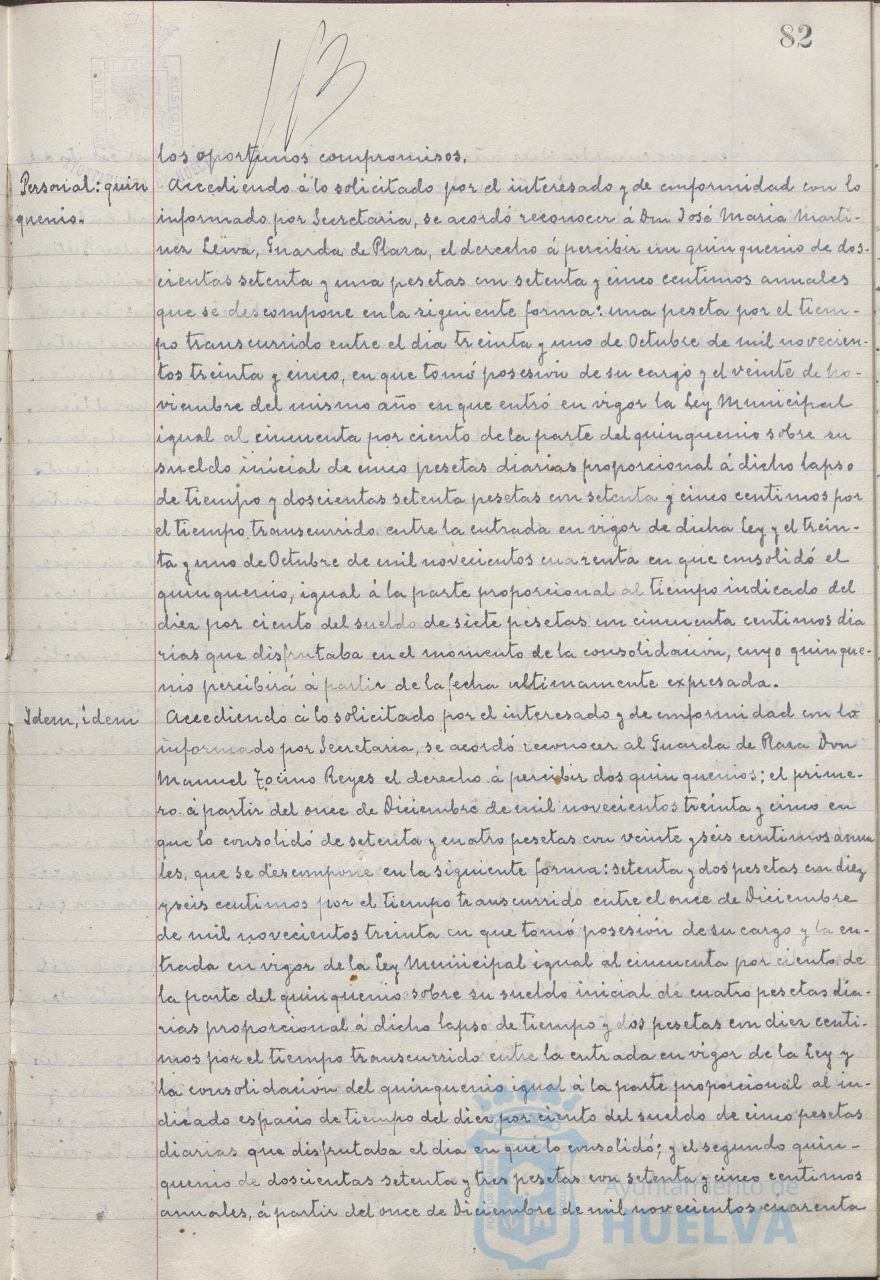 82
113
los oportunos compromisos.
Personal: quin
quenio.
Accediendo á lo solicitado por el interesado y de conformidad con lo
informado por Secretaria, se acordó reconocer á Don José Maria Marti-
nez Leiva, Guarda de Plaza, el derecho á percibir un quinquenio de dos-
cientas setenta y una pesetas con setenta y cinco centimos anuales
que se descompone en la siguiente forma: una peseta por el tiem-
po transcurrido entre el dia treinta y uno de Octubre de mil novecien-
tos treinta y cinco, en que tomó posesión de su cargo y el veinte de no-
viembre del mismo año en que entró en vigor la Ley Municipal
igual al cincuenta por ciento de la parte del quinquenio sobre su
sueldo inicial de cinco pesetas diarias proporcional á dicho lapso
de tiempo y doscientas setenta pesetas con setenta y cinco centimos por
el tiempo transcurrido entre la entrada en vigor de dicha Ley y el trein-
ta y uno de Octubre de mil novecientos cuarenta en que consolidó el
quinquenio, igual á la parte proporcional al tiempo indicado del
diez por ciento del sueldo de siete pesetas con cincuenta centimos dia
rias que disfrutaba en el momento de la consolidación, cuyo quinque-
nio percibirá á partir de la fecha ultimamente expresada.
Idem, idem
Accediendo á lo solicitado por el interesado y de conformidad con lo
informado por Secretaria, se acordó reconocer al Guarda de Plaza Don
Manuel Tocino Reyes el derecho á percibir dos quinquenios; el prime-
ro á partir del once de Diciembre de mil novecientos treinta y cinco en
que lo consolidó de setenta y cuatro pesetas con veinte y seis centimos anua
les, que se descompone en la siguiente forma: setenta y dos pesetas con diez
y seis centimos por el tiempo transcurrido entre el once de Diciembre
de mil novecientos treinta en que tomó posesión de su cargo y la en-
trada en vigor de la Ley Municipal igual al cincuenta por ciento de
la parte del quinquenio sobre su sueldo inicial de cuatro pesetas dia-
rias proporcional á dicho lapso de tiempo y dos pesetas con diez centi-
mos por el tiempo transcurrido entre la entrada en vigor de la Ley y
la consolidación del quinquenio igual á la parte proporcional al in-
dicado espacio de tiempo del diez por ciento del sueldo de cinco pesetas
diarias que disfrutaba el dia en que lo consolidó; y el segundo quin-
quenio de doscientas setenta y tres pesetas con setenta y cinco centimos
anuales, á partir del once de Diciembre de mil novecientos cuarenta
Ayuntamiento de
HUELVA